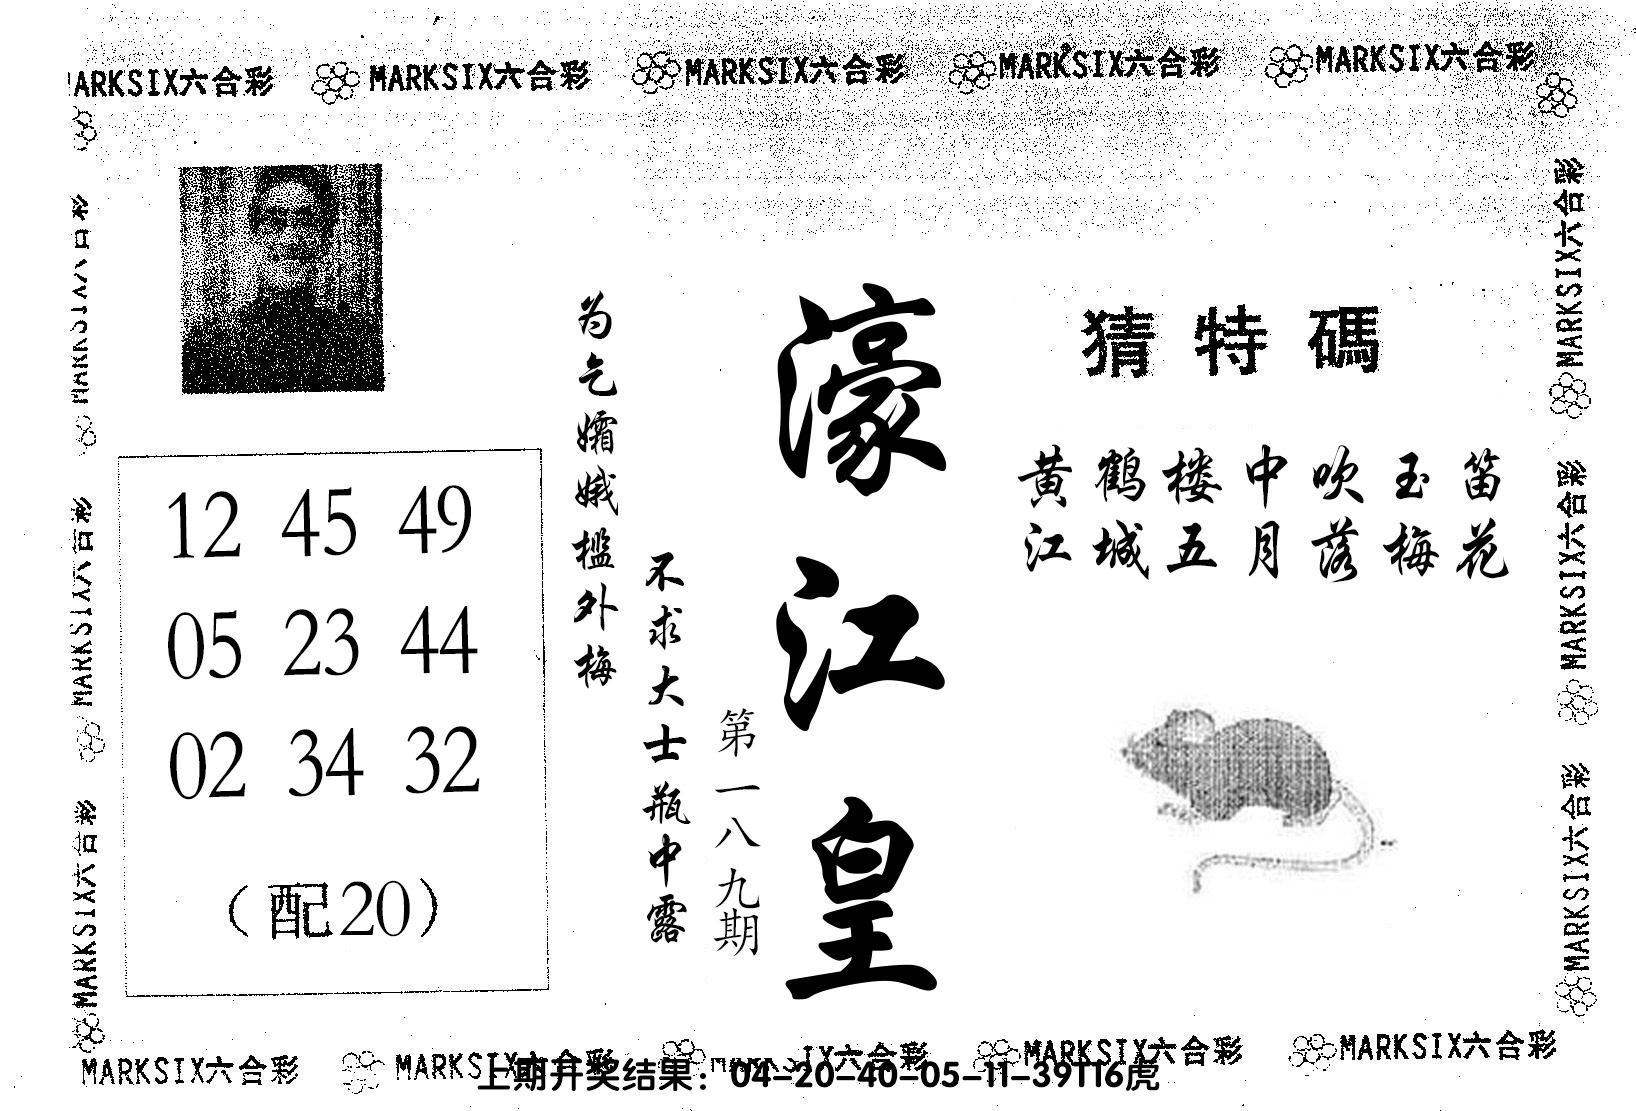 MARKSIX六合彩 MARKSIX六合彩 MARKSIX六合彩 MARKSIX六合彩 MARKSIX六合彩
猜特碼
黄鹤楼中吹玉笛
江城五月落梅花
濠江皇
第一八九期
不求大士瓶中露
为乞孀娥槛外梅
12 45 49
05 23 44
02 34 32
（配20）
MARKSIX六合彩
MARKSIX六合彩
MARKSIX六合彩
MARKSIX六合彩
MARKSIX六合彩
MARKSIX六合彩
MARKSIX六合彩 MARKSIX六合彩 IX六合彩 MARKSIX六合彩 MARKSIX六合彩
上期开奖结果：04-20-40-05-11-39T16虎